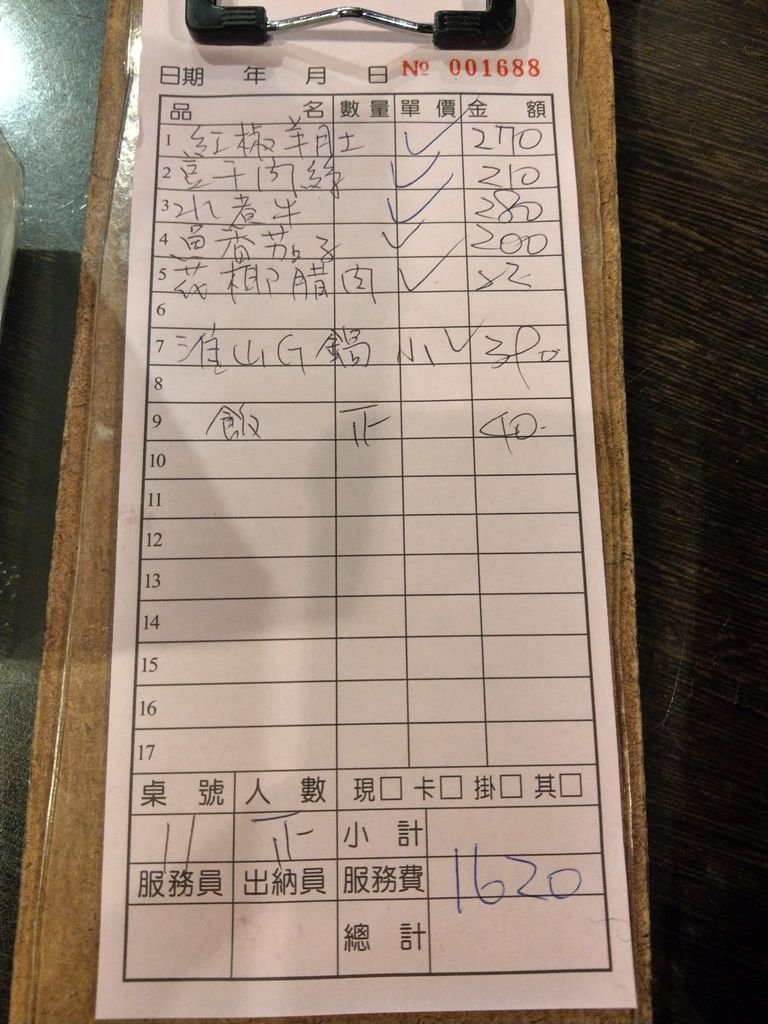 日期 年 月 日 № 001688
品 名 數量 單價 金 額
1 紅椒羊肚 ✓ 270
2 豆干肉絲 ✓ 210
3 水煮牛 ✓ 280
4 魚香茄子 ✓ 200
5 花椰腊肉 ✓
6
7 淮山G鍋 小 ✓ 390
8
9 飯 正 40.
10
11
12
13
14
15
16
17
桌 號 人 數 現□ 卡□ 掛□ 其□
11 正 小 計
服務員 出納員 服務費 1620
總 計